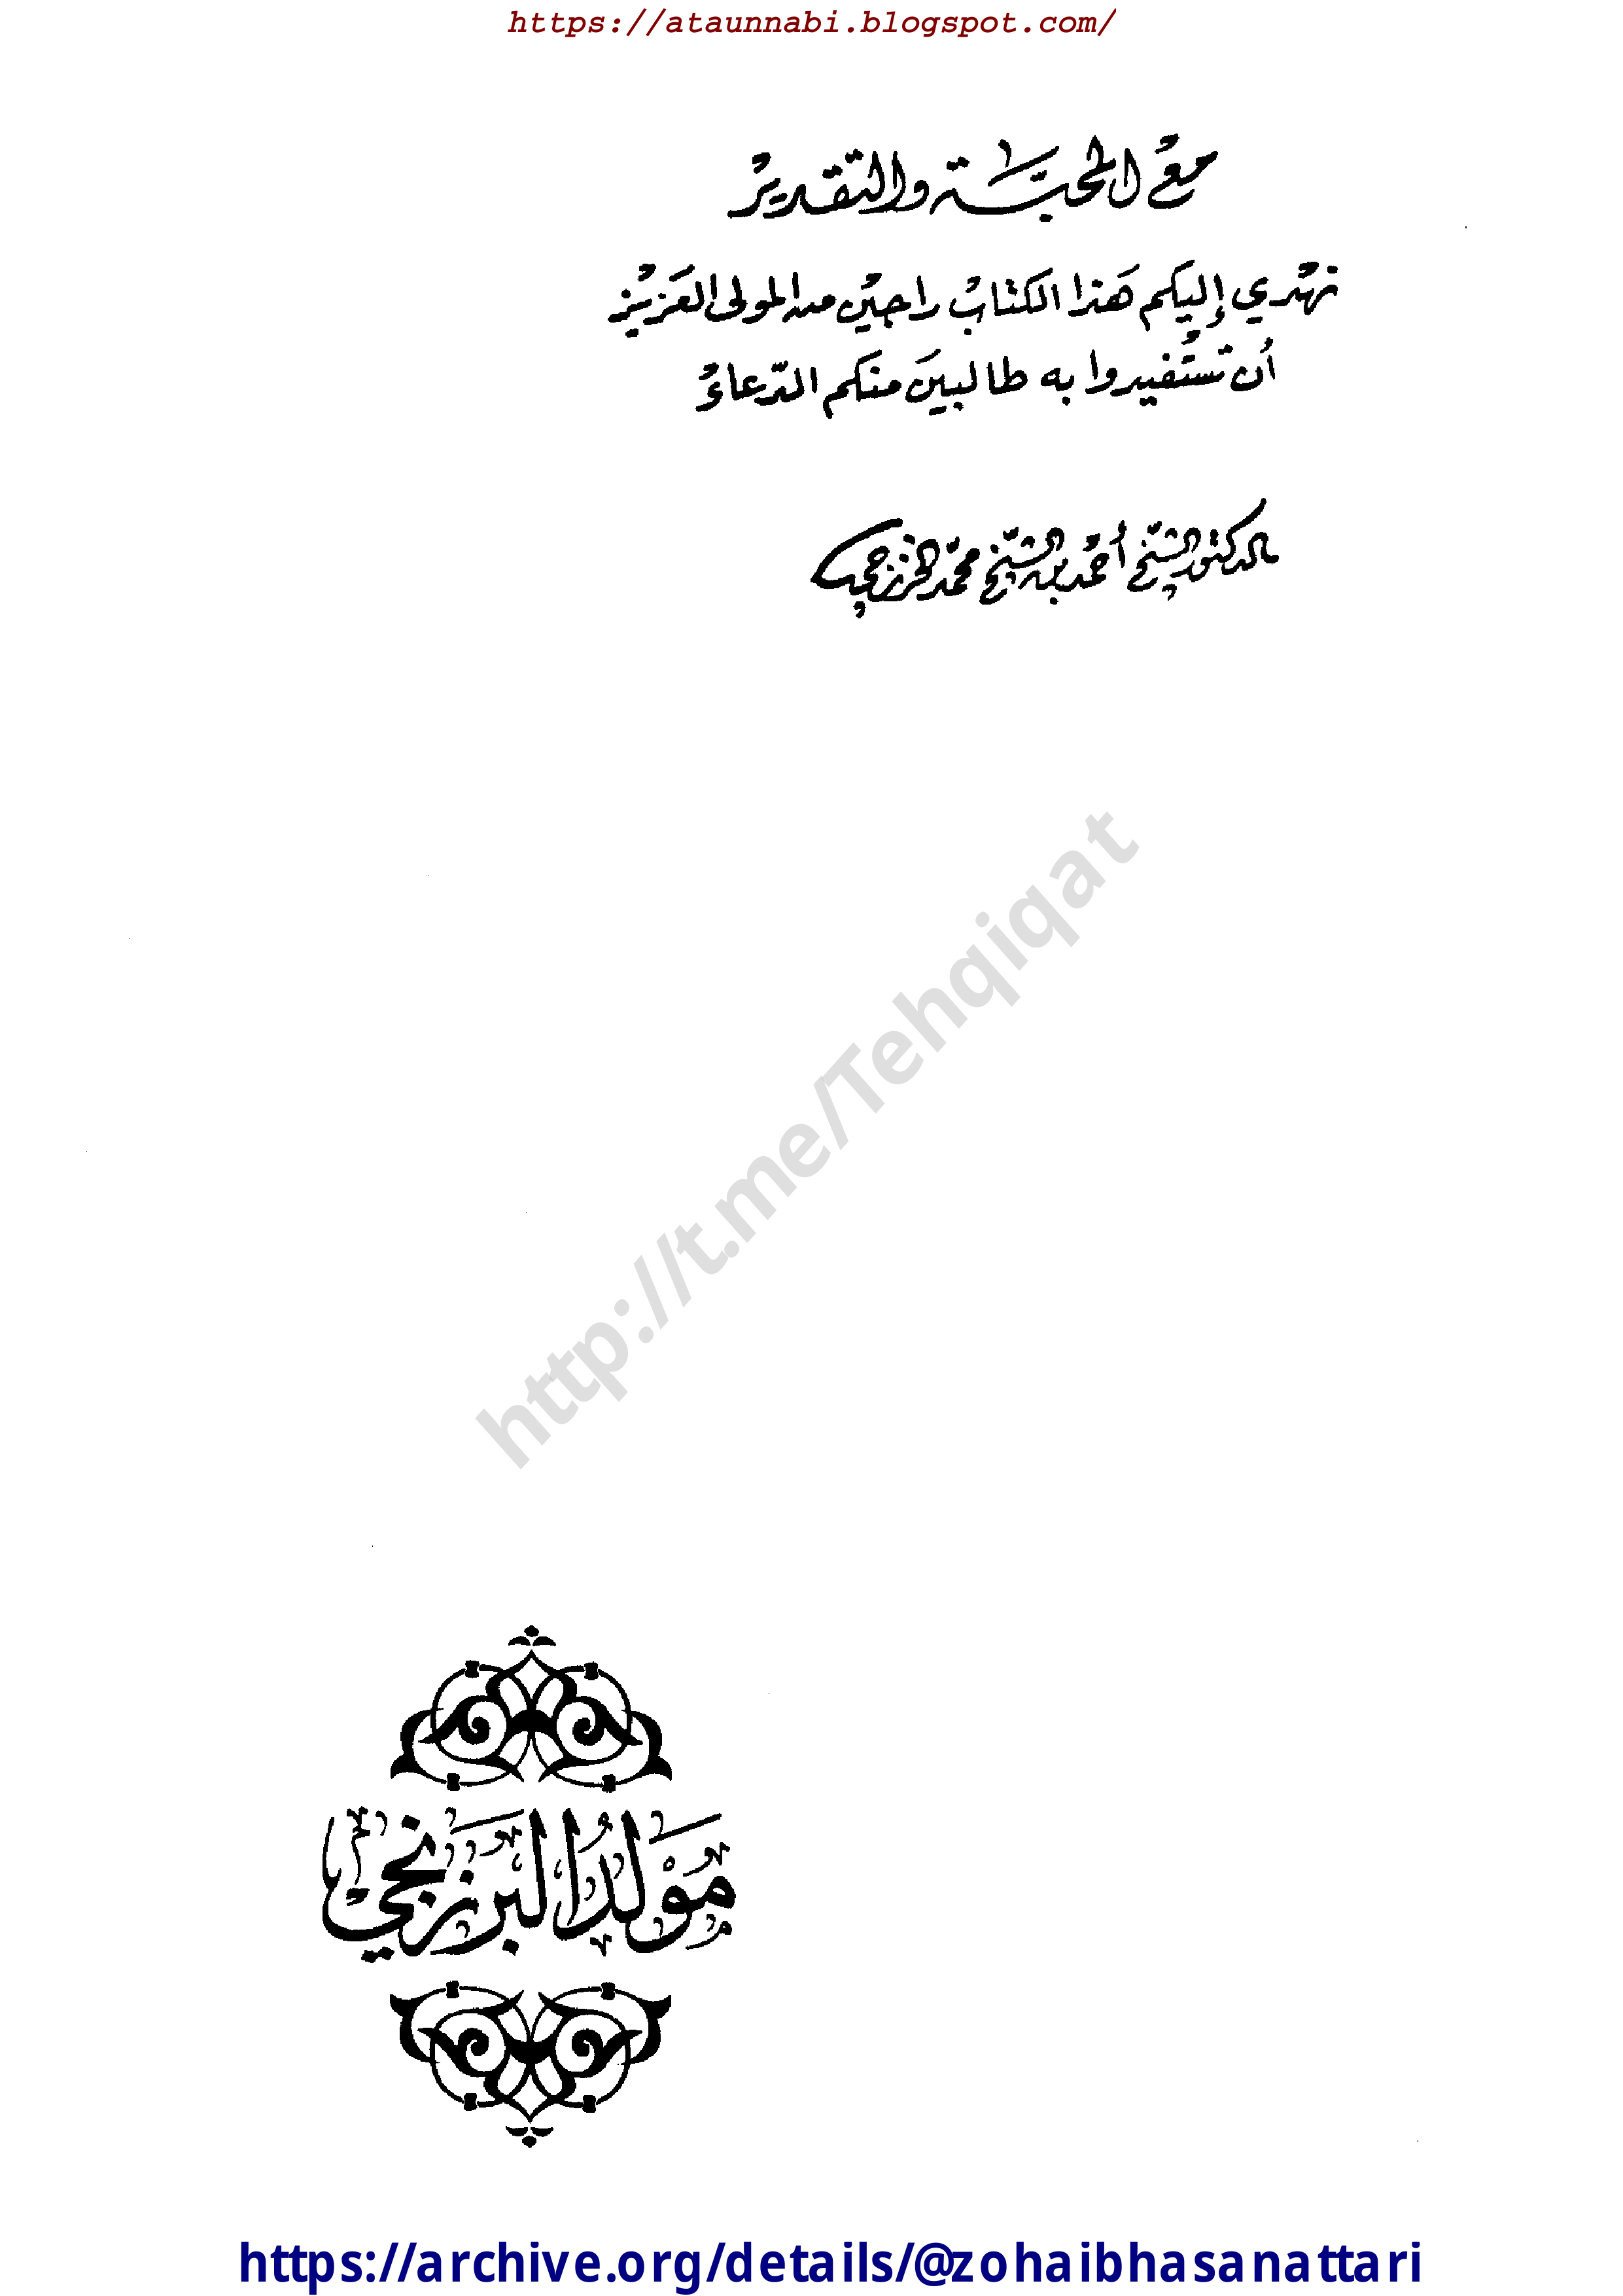 https://ataunnabi.blogspot.com/
مع المحبّة والتقدير
نهدي إليكم هَذا الكتاب راجين من المولى العَزيز
أن تستفيدوا به طالبينَ منكم الدّعاء
الدكتور الشيخ أحمد بن الشيخ محمّد الخزرجي
http://t.me/Tehqiqat
مَوْلدُ البَرزنجي
https://archive.org/details/@zohaibhasanattari